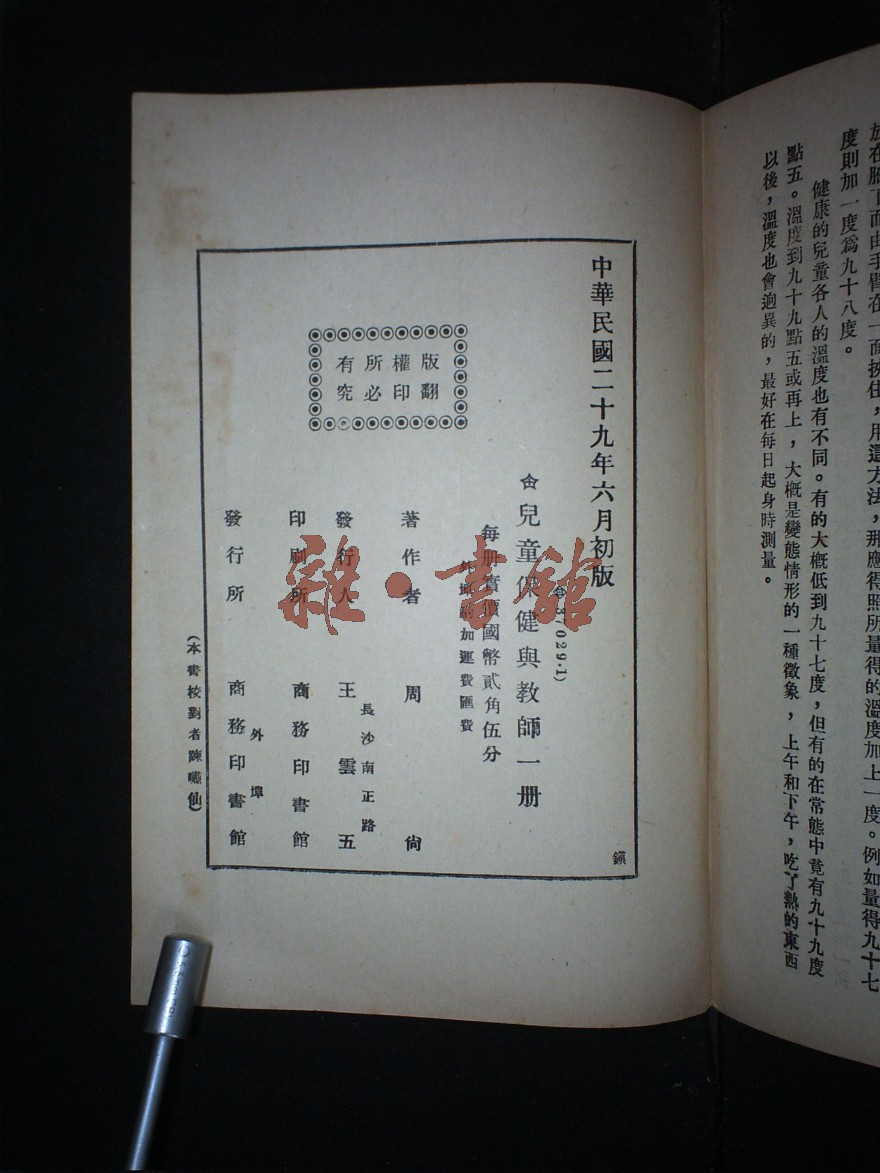 放在腋下而由手臂在一面挾住，用這方法，那應得照所量得的溫度加上一度。例如量得九十七
度則加一度爲九十八度。
健康的兒童各人的溫度也有不同。有的大概低到九十七度，但有的在常態中竟有九十九度
點五。溫度到九十九點五或再上，大概是變態情形的一種徵象，上午和下午，吃了熱的東西
以後，溫度也會迥異的，最好在每日起身時測量。
中華民國二十九年六月初版
87029·1)
兒童保健與教師一册
每册實價國幣貳角伍分
外埠酌加運費匯費
版權所有
翻印必究
著作者 周尚
長沙南正路
發行人 王雲五
印刷所 商務印書館
外埠
發行所 商務印書館
(本書校對者陳嘯仙)
鎭
雜·書館